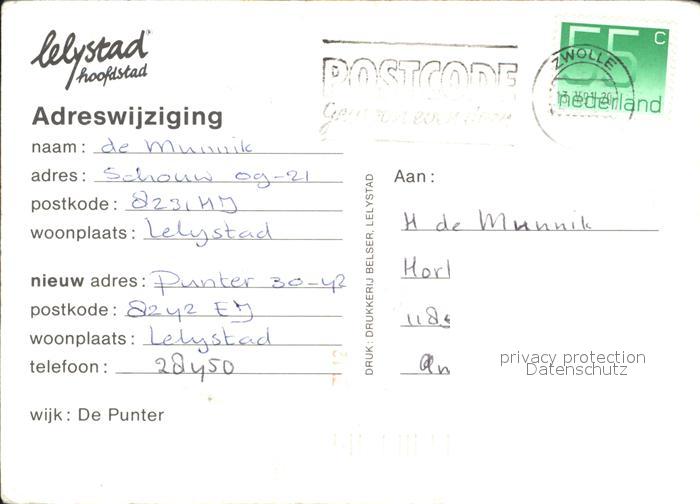 lelystad
hoofdstad
Adreswijziging
naam: de Munnik
adres: Schouw 09-21
postkode: 8231HJ
woonplaats: Lelystad
nieuw adres: Punter 30-42
postkode: 8242 EJ
woonplaats: Lelystad
telefoon: 28450
wijk: De Punter
DRUK: DRUKKERIJ BELSER, LELYSTAD
POSTCODE
ZWOLLE
55 c
nederland
Aan:
H de Munnik
Horl
118
privacy protection
Datenschutz